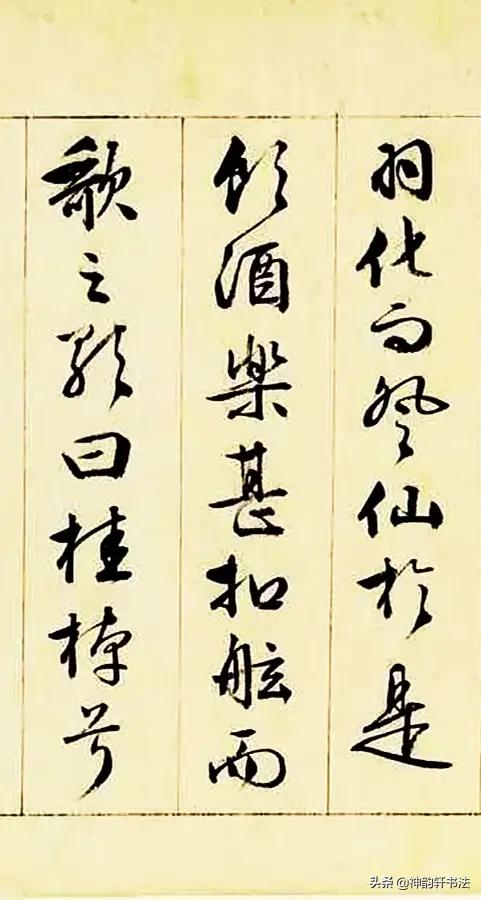 羽化而登仙於是
飲酒樂甚扣舷而
歌之歌曰桂棹兮
头条 @神韵轩书法